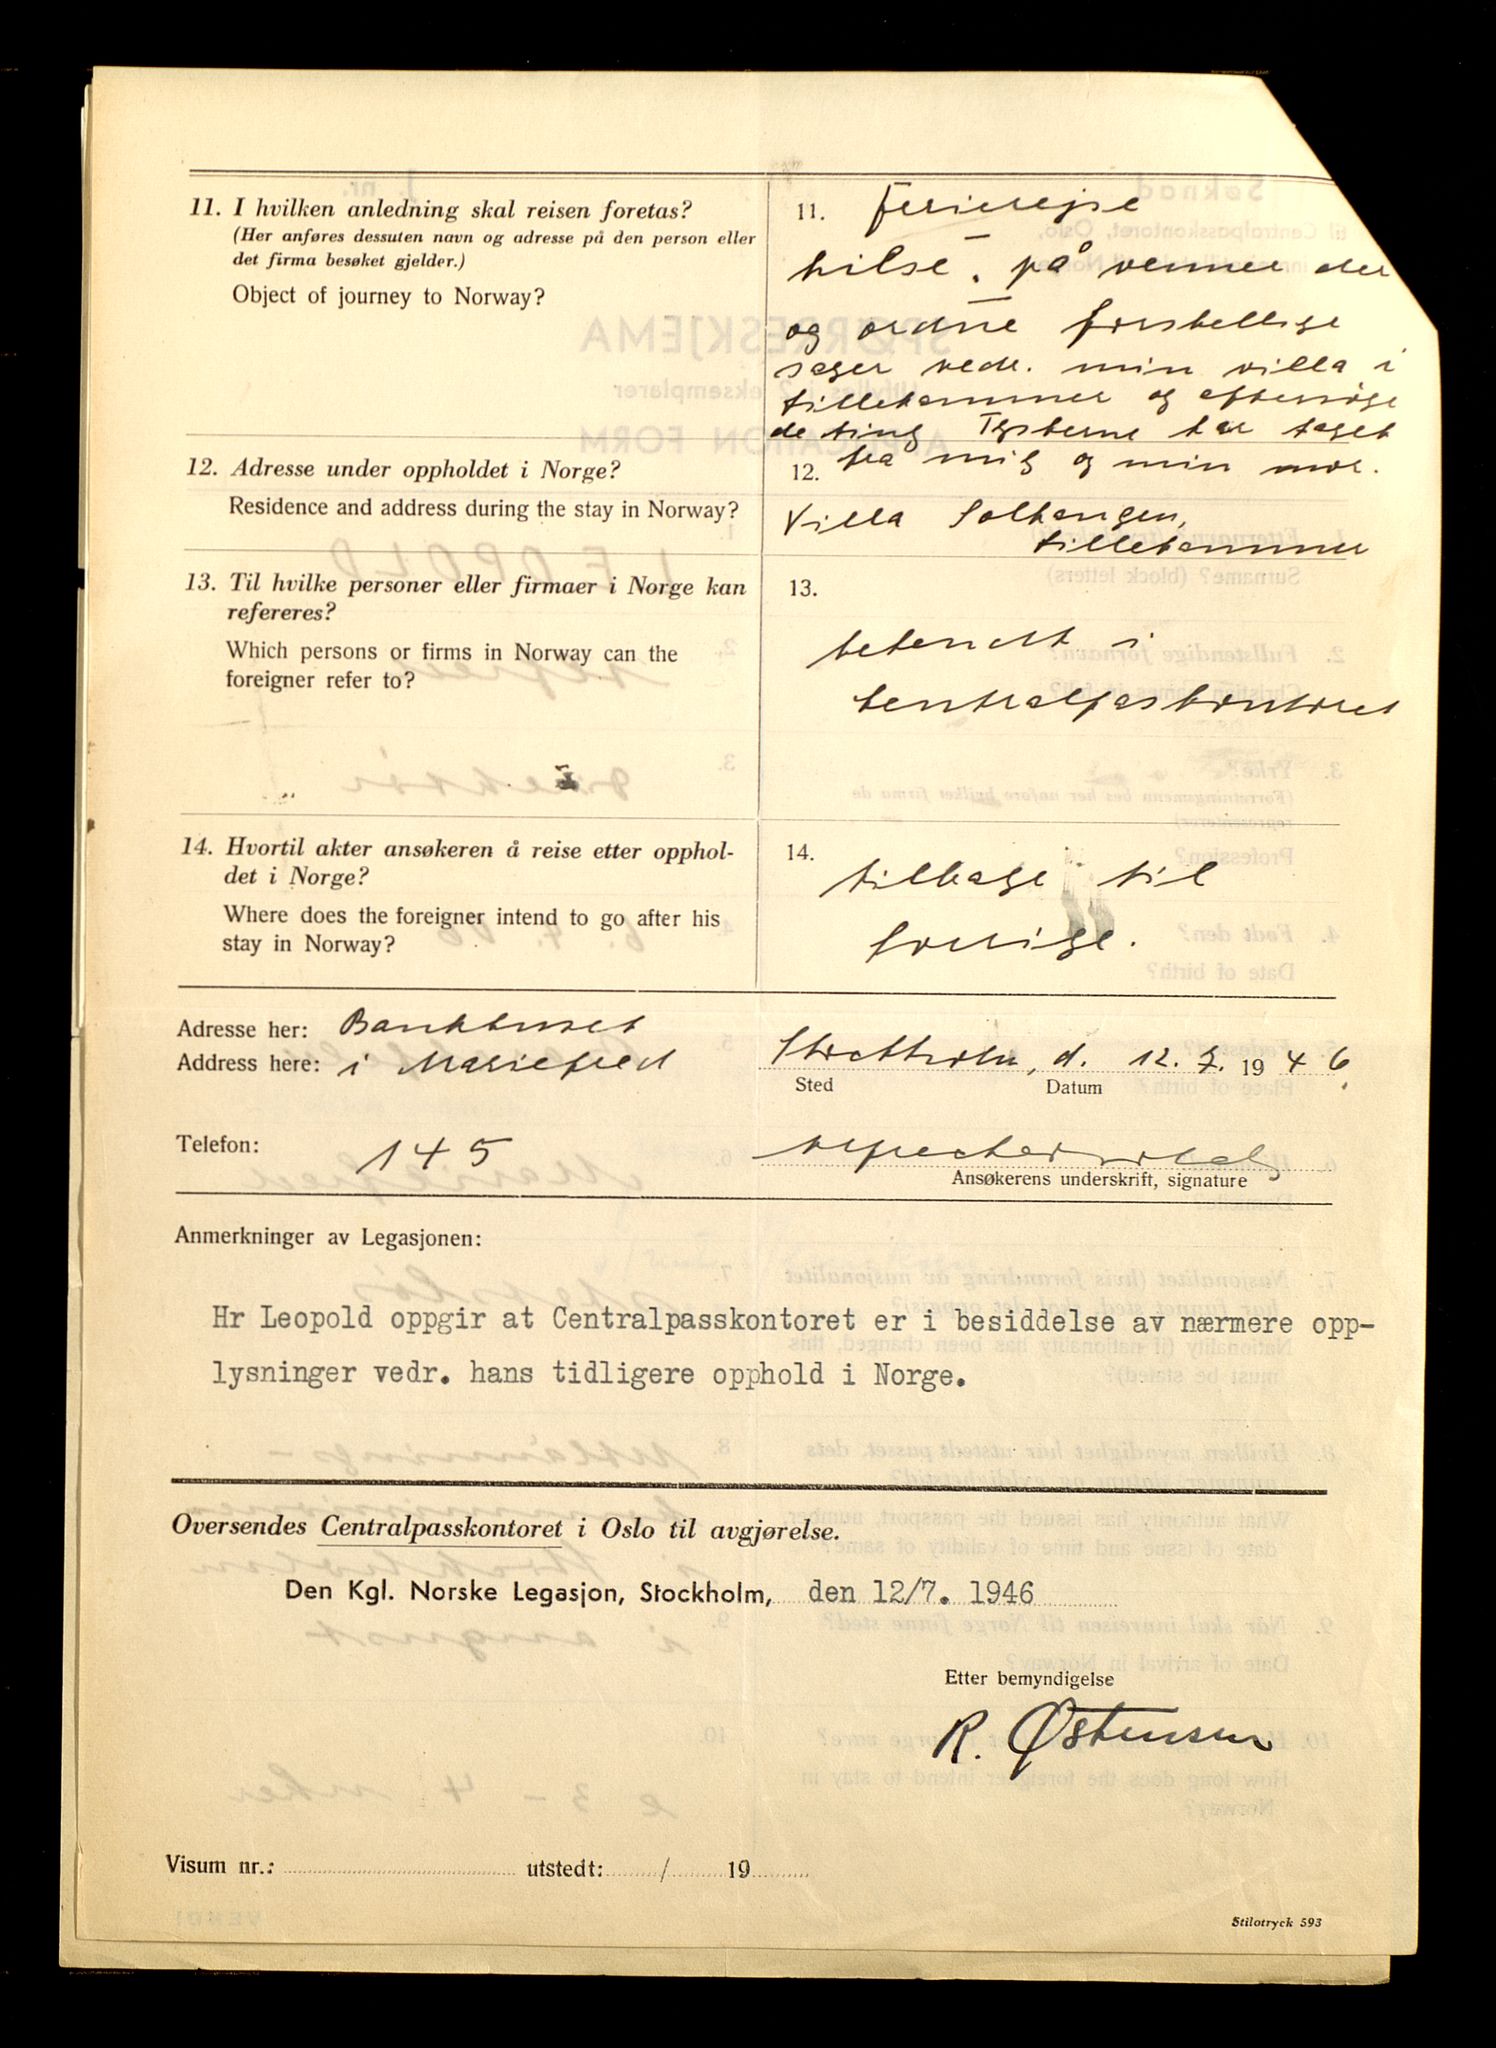 11. I hvilken anledning skal reisen foretas?
(Her anføres dessuten navn og adresse på den person eller
det firma besøket gjelder.)
Object of journey to Norway?
11. Feriereise
hilse på venner der
og ordne forskellige
sager vedr. min villa i
Lillehammer og eftersøge
de ting Tyskerne har taget
fra mig og min mor.
12. Adresse under oppholdet i Norge?
Residence and address during the stay in Norway?
12.
Villa Solhaugen,
Lillehammer
13. Til hvilke personer eller firmaer i Norge kan
refereres?
Which persons or firms in Norway can the
foreigner refer to?
13.
bekendt i
Centralpaskontoret
14. Hvortil akter ansøkeren å reise etter opphol-
det i Norge?
Where does the foreigner intend to go after his
stay in Norway?
14.
tilbage til
Sverige.
Adresse her: Bankhuset
Address here: i Mariefred
Stockholm, d. 12. 7. 1946.
Sted Datum
Telefon: 145
Ansøkerens underskrift, signature
Anmerkninger av Legasjonen:
Hr Leopold oppgir at Centralpasskontoret er i besiddelse av nærmere opp-
lysninger vedr. hans tidligere opphold i Norge.
Oversendes Centralpasskontoret i Oslo til avgjørelse.
Den Kgl. Norske Legasjon, Stockholm, den 12/7. 1946
Etter bemyndigelse
R. Østensen
Visum nr.: utstedt: / 19
Stilotryck 593